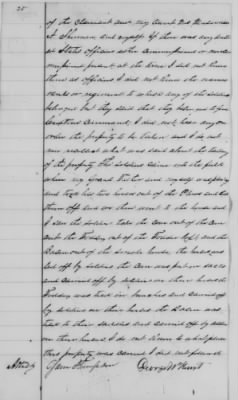 25
of the Claimant and my Aunt Mrs
A Sherman and myself. If there was any
or State officers either Commissioned or non
commissioned present at the time I did not know
them as officers I did not know the names
or regiment to which any of the soldiers
belonged but they said that they belonged to Gen
Command, I did not hear any one
order the property to be taken and I do not
now recollect what was said about the taking
of the property The Soldiers came into the field
where my Grand Father and myself was
and took his two horses out of the Plows and
them off and we then went to the house and
I saw the soldiers take the Corn out of the Corn
Crib the Fodder out of the Fodder loft and the
Bacon out of the Smoke house the horses was
led off by soldiers the Corn was put in sacks
and carried off by soldiers on their horses the
Fodder was tied in bunches and carried off
by soldiers on their horses the Bacon was
tied to their saddles and carried off by soldiers
on their horses I do not know to what place
this property was carried I did not follow it
Attest George W Hunt